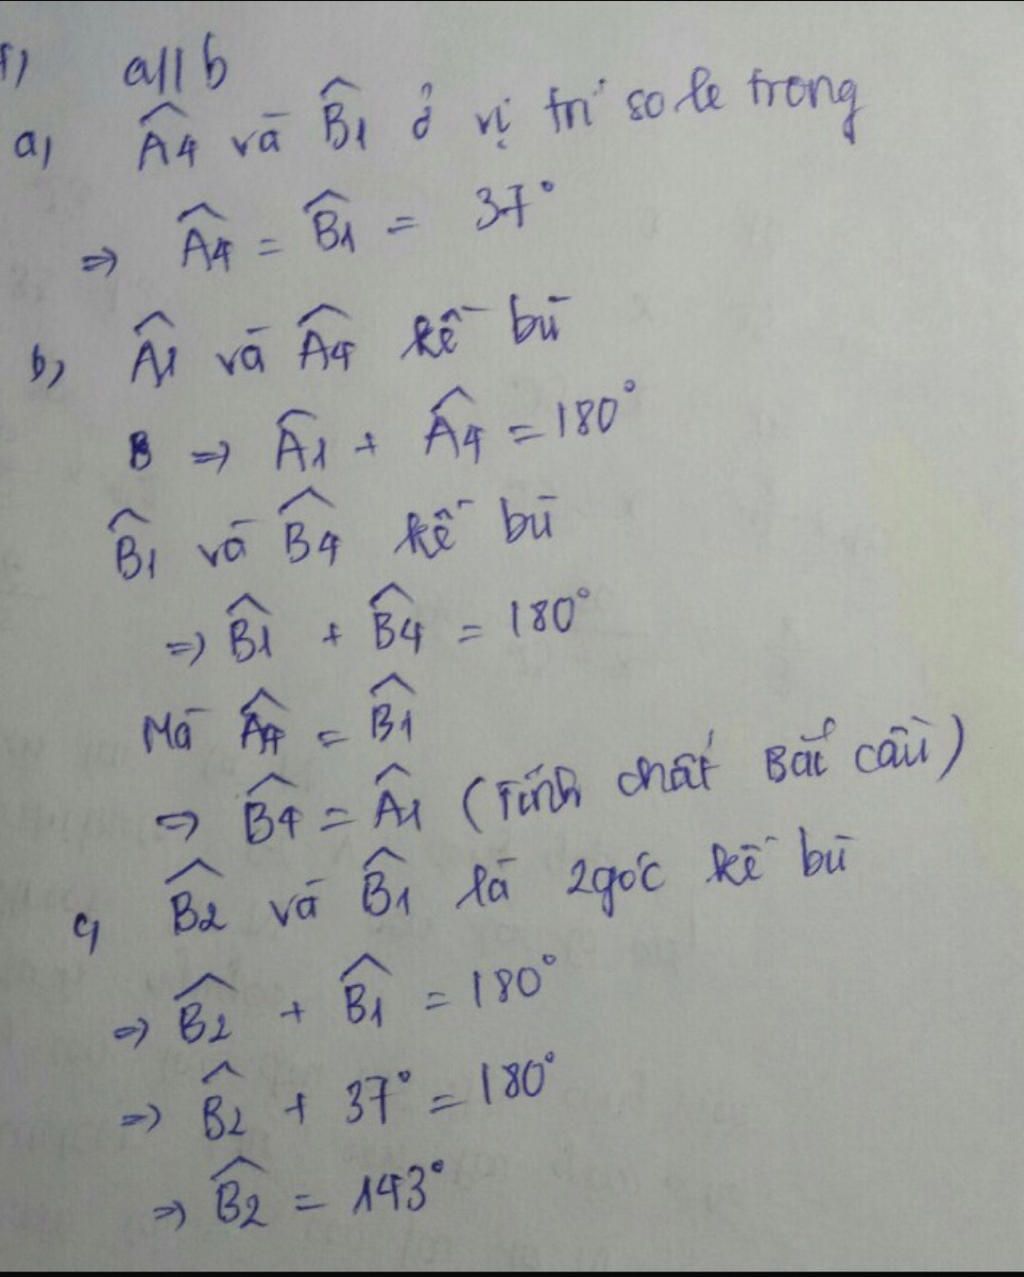 1) a // b
a) Â4 và B̂1 ở vị trí so le trong
⇒ Â4 = B̂1 = 37°
b) Â1 và Â4 kề bù
B ⇒ Â1 + Â4 = 180°
B̂1 và B̂4 kề bù
⇒ B̂1 + B̂4 = 180°
Mà Â4 = B̂1
⇒ B̂4 = Â1 (Tính chất Bắc cầu)
c) B̂2 và B̂1 là 2 góc kề bù
⇒ B̂2 + B̂1 = 180°
⇒ B̂2 + 37° = 180°
⇒ B̂2 = 143°